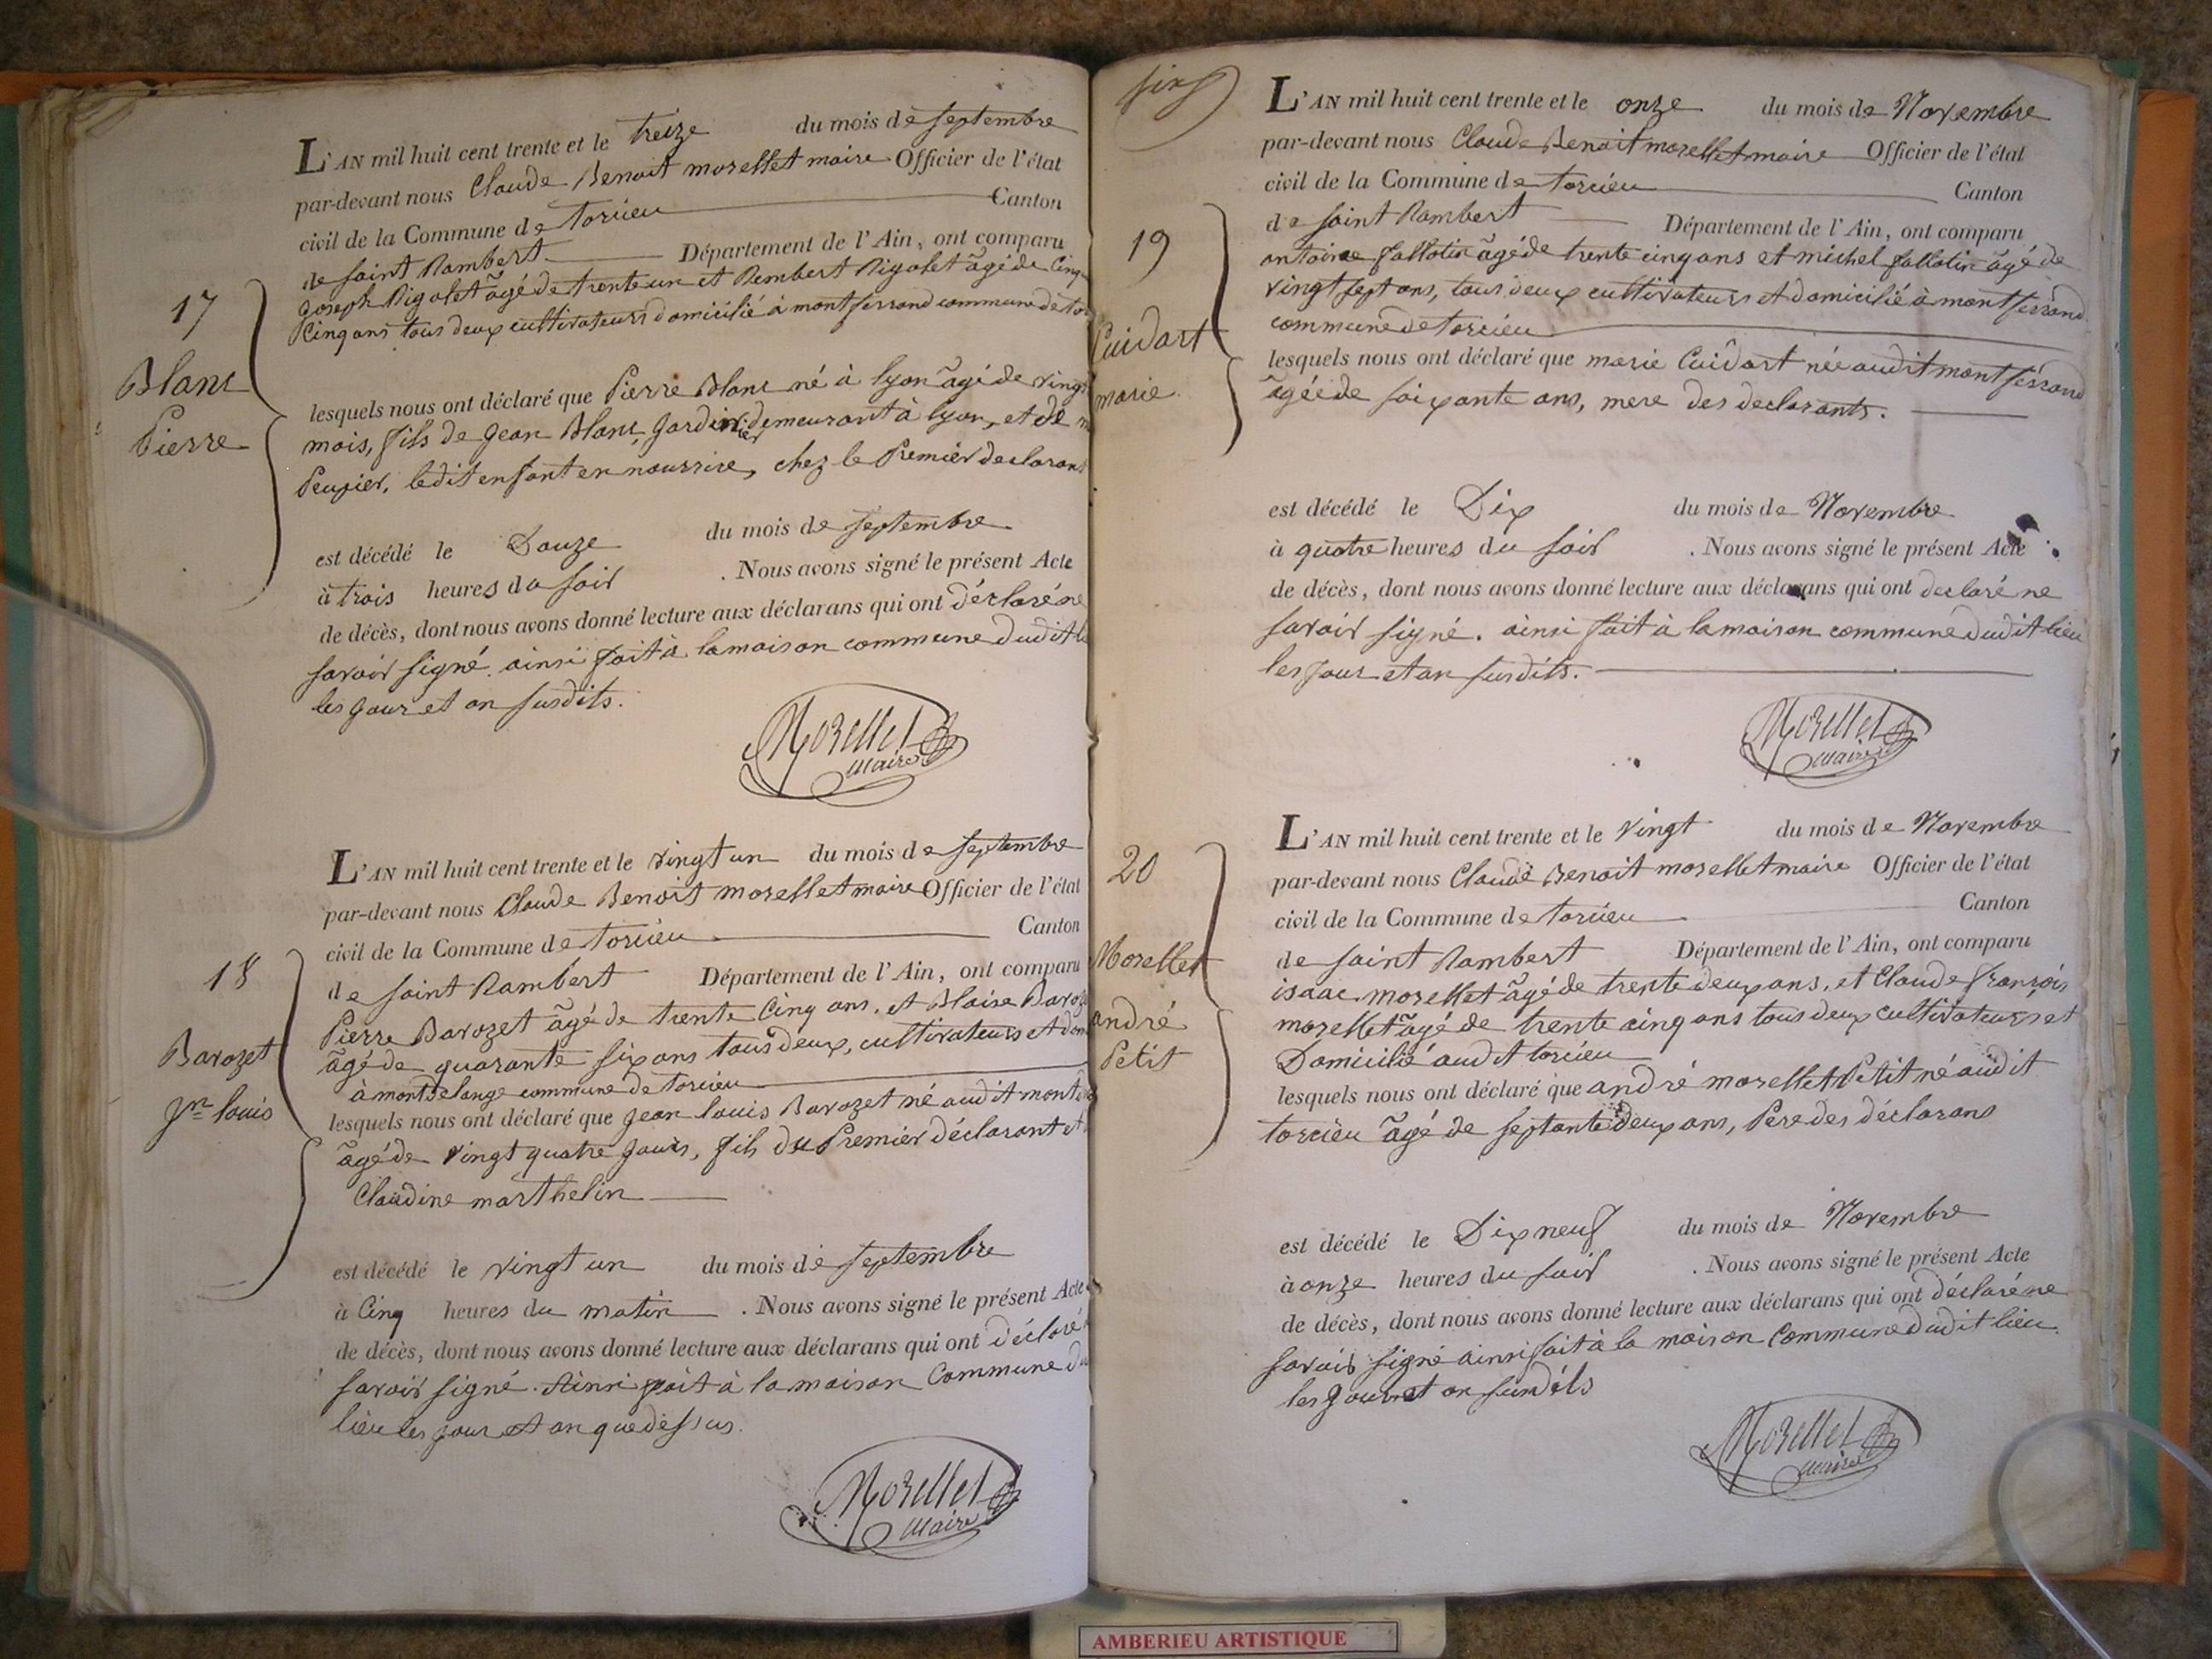 17
Blanc
Pierre
L'AN mil huit cent trente et le treize du mois de septembre
par-devant nous Claude Benoit morellet maire Officier de l'état
civil de la Commune de torcieu Canton
de saint Rambert Département de l'Ain, ont comparu
joseph Rigolet âgé de trente un et Rembert Rigolet âgé de Cinq
Cinq ans tous deux cultivateurs domicilié à montferrand commune de tor
lesquels nous ont déclaré que Pierre Blanc né à lyon âgé de vingt
mois, fils de jean Blanc, jardinier demeurant à lyon, et de
Peupier, ledit enfant en nourrire, chez le Premier declarant
est décédé le Douze du mois de septembre
à trois heures du soir . Nous avons signé le présent Acte
de décès, dont nous avons donné lecture aux déclarans qui ont déclaré ne
savoir signé. ainsi fait à la maison commune dudit
les jour et an susdits.
Morellet
Maire
18
Barozet
jn louis
L'AN mil huit cent trente et le vingt un du mois de septembre
par-devant nous Claude Benoit morellet maire Officier de l'état
civil de la Commune de torcieu Canton
de saint Rambert Département de l'Ain, ont comparu
Pierre Barozet âgé de trente Cinq ans, et Blaise Baroz
âgé de quarante six ans tous deux, cultivateurs et dom
à montdelange commune de torcieu
lesquels nous ont déclaré que jean louis Barozet né audit montd
âgé de vingt quatre jours, fils du Premier déclarant et
Claudine marthelin
est décédé le vingt un du mois de septembre
à Cinq heures du matin . Nous avons signé le présent Acte
de décès, dont nous avons donné lecture aux déclarans qui ont déclaré
savoir signé. Ainsi fait à la maison Commune du
lieu les jour et an que dessus.
Morellet
Maire
19
Cuidart
marie
L'AN mil huit cent trente et le onze du mois de Novembre
par-devant nous Claude Benoit morellet maire Officier de l'état
civil de la Commune de torcieu Canton
de saint Rambert Département de l'Ain, ont comparu
antoine fallotin âgé de trente cinq ans et michel fallotin âgé de
vingt sept ans, tous deux cultivateurs et domicilié à montferrand
commune de torcieu
lesquels nous ont déclaré que marie Cuidart née audit montferrand
âgée de soixante ans, mere des declarants.
est décédé le Dix du mois de Novembre
à quatre heures du soir . Nous avons signé le présent Acte
de décès, dont nous avons donné lecture aux déclarans qui ont declaré ne
savoir signé. ainsi fait à la maison commune dudit lieu
les jour et an susdits.
Morellet
Maire
20
Morellet
andré
Petit
L'AN mil huit cent trente et le vingt du mois de Novembre
par-devant nous Claude Benoit morellet maire Officier de l'état
civil de la Commune de torcieu Canton
de saint Rambert Département de l'Ain, ont comparu
isaac morellet âgé de trente deux ans, et Claude françois
morellet âgé de trente cinq ans tous deux cultivateurs et
Domicilié audit torcieu
lesquels nous ont déclaré que andré morellet Petit né audit
torcieu âgé de septante deux ans, Pere des déclarans
est décédé le Dix neuf du mois de Novembre
à onze heures du soir . Nous avons signé le présent Acte
de décès, dont nous avons donné lecture aux déclarans qui ont déclaré ne
savoir signé ainsi fait à la maison Commune dudit lieu
les jour et an susdits
Morellet
Maire
AMBERIEU ARTISTIQUE